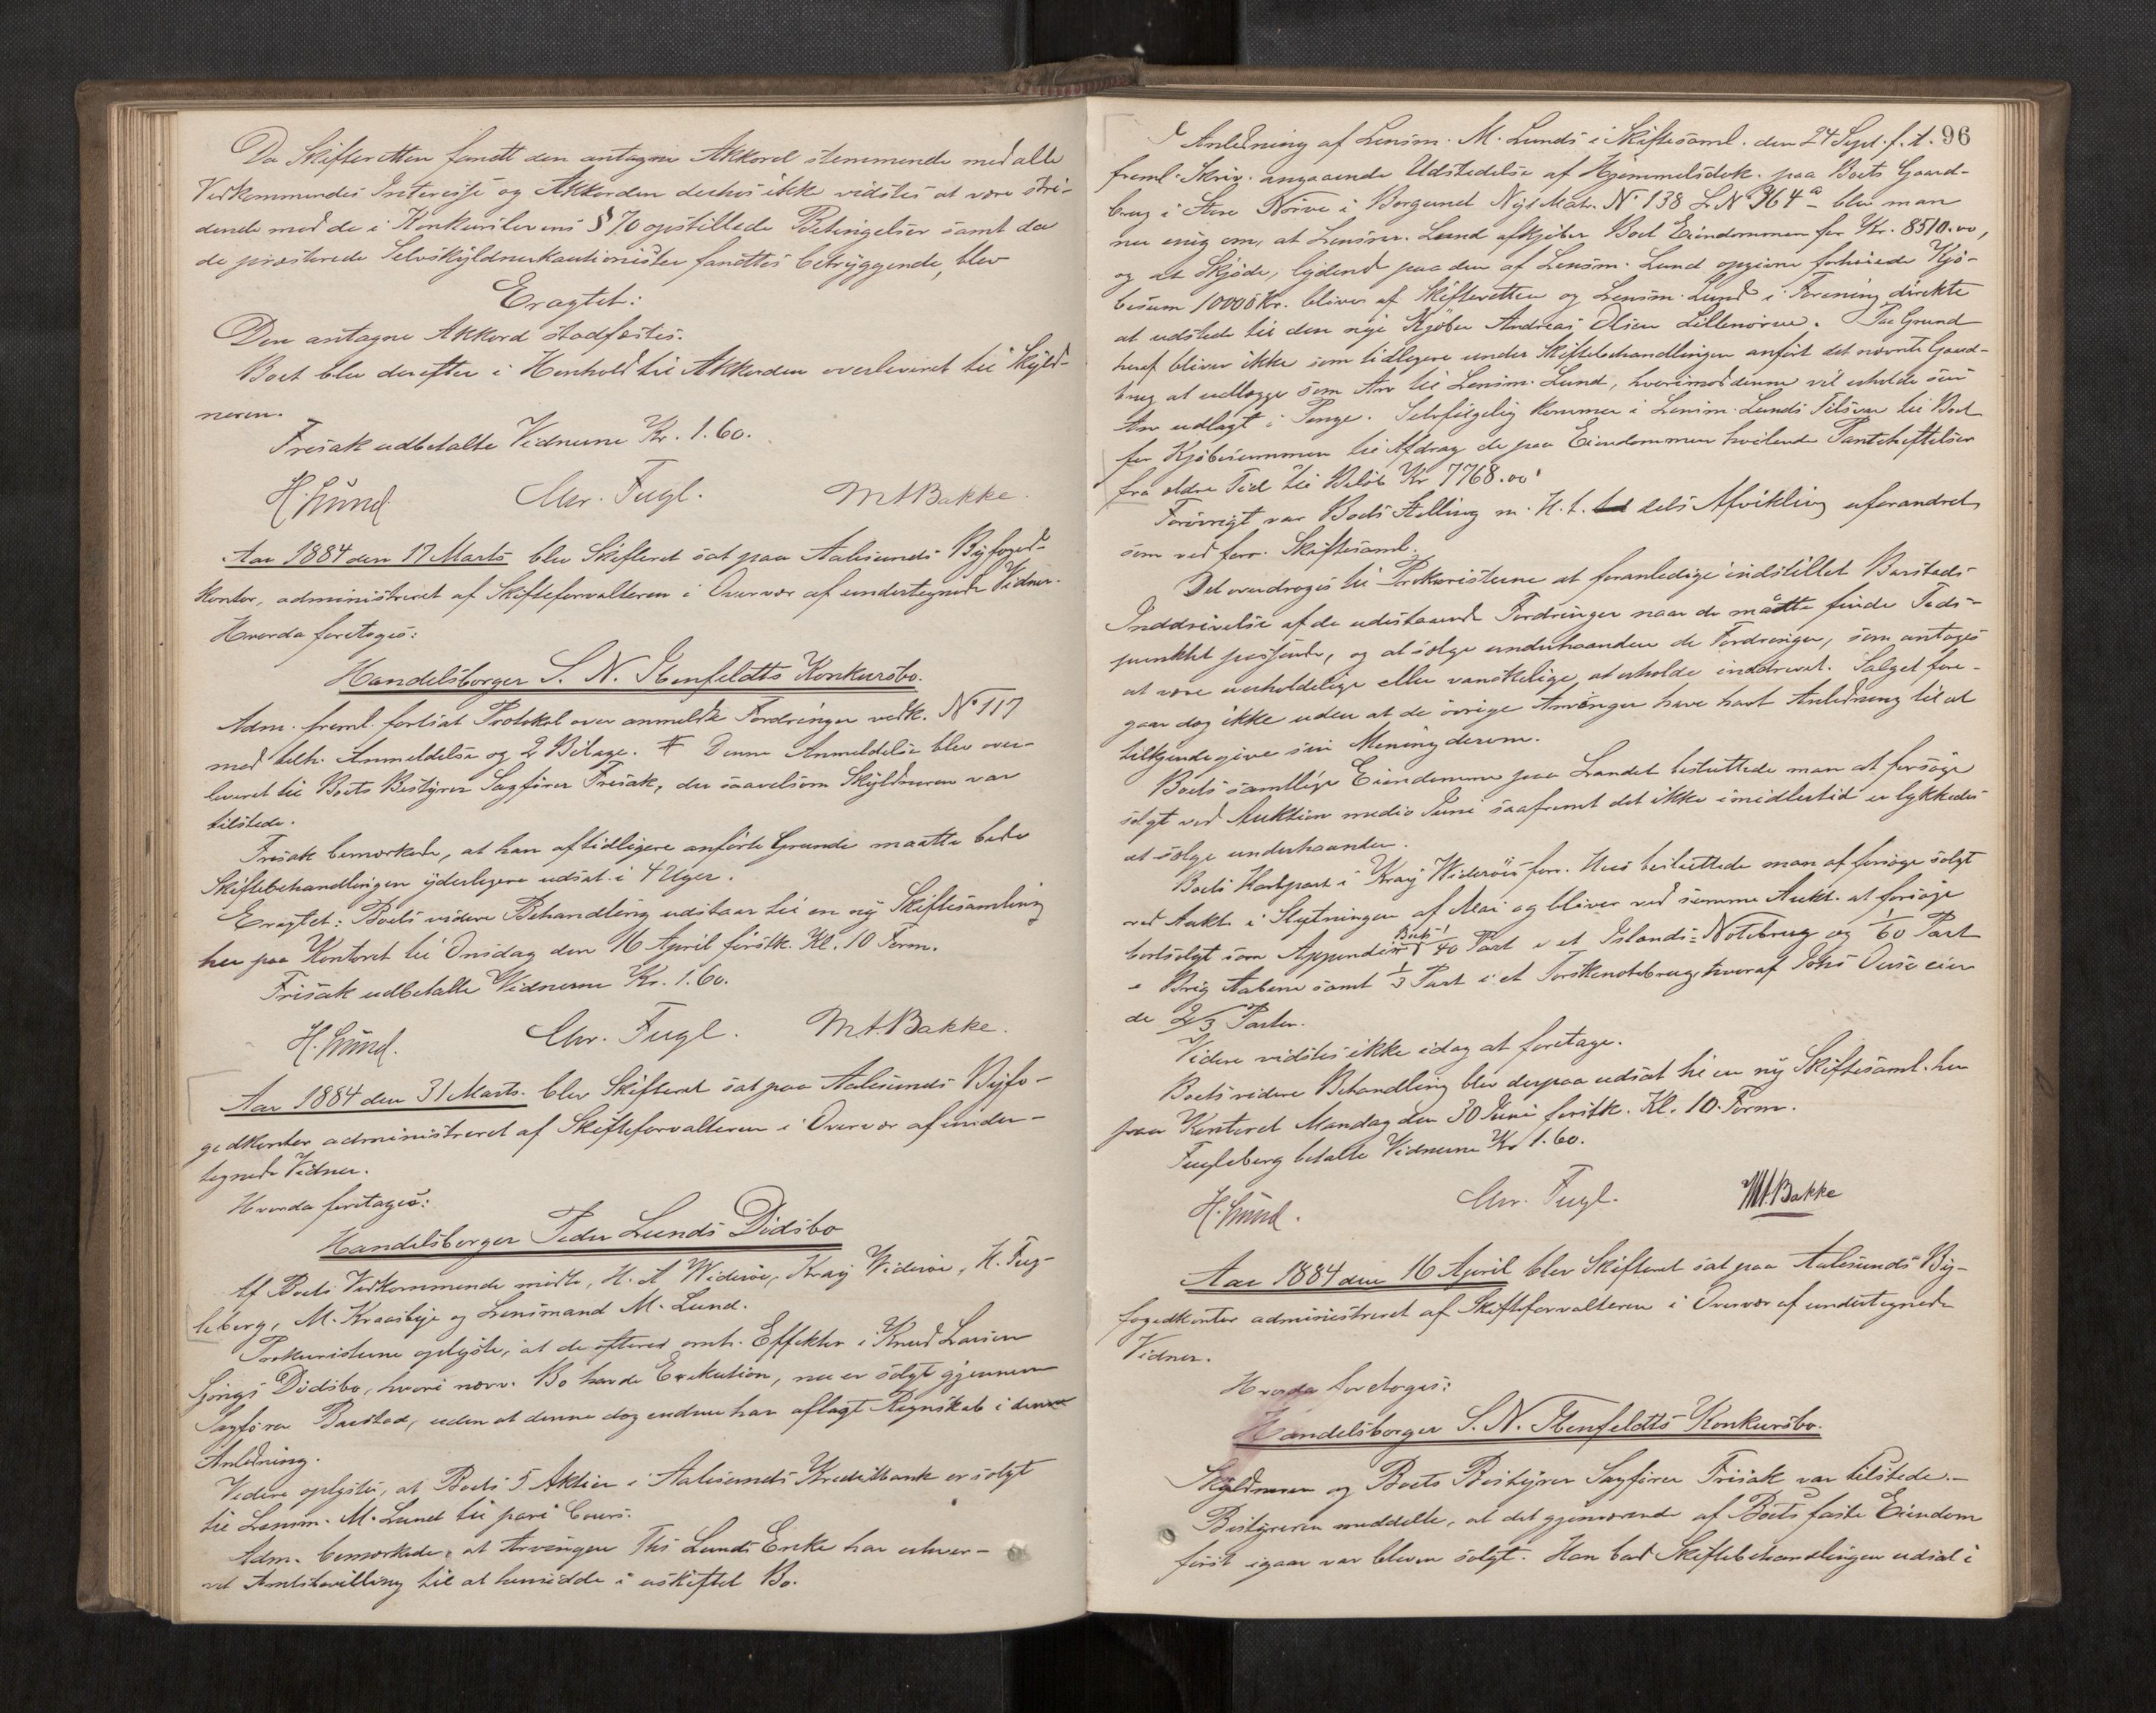 Da Skifteretten fandt den antagne Akkord stemmende med alle
Vedkommendes Interesse og Akkorden derhos ikke vidstes at være stri-
dende mod de i Konkurslovens § 70 opstillede Betingelser samt da
de præsterede Selvskyldnerkautionister fandtes betryggende, blev
Eragtet:
Den antagne Akkord stadfæstes.
Boet blev derefter i Henhold til Akkorden overleveret til Skyld-
neren.
Frisak udbetalte Vidnerne Kr. 1.60.
H. Lund. Chr. Fugl. M A Bakke.
Aar 1884 den 17 Marts blev Skifteret sat paa Aalesunds Byfoged-
kontor, administreret af Skifteforvalteren i Overvær af undertegnede Vidner.
Hvorda foretoges:
Handelsborger S. N. Stenfeldts Konkursbo.
Adm. freml. fortsat Protokol over anmeldte Fordringer vedk. No 117
med tilh. Anmeldelse og 2 Bilage. Denne Anmeldelse blev over-
leveret til Boets Bestyrer Sagfører Frisak, der saavelsom Skyldneren var
tilstede.
Frisak bemærkede, at han af tidligere anførte Grunde maatte bede
Skiftebehandlingen yderligere udsat i 4 Uger.
Eragtet: Boets videre Behandling udstaar til en ny Skiftesamling
her paa Kontoret til Onsdag den 16 April førstk. Kl. 10 Form.
Frisak udbetalte Vidnerne Kr. 1.60.
H. Lund. Chr. Fugl. M A. Bakke.
Aar 1884 den 31 Marts. blev Skifteret sat paa Aalesunds Byfo-
gedkontor administreret af Skifteforvalteren i Overvær af under-
tegnede Vidner.
Hvorda foretages:
Handelsborger Peder Lunds Dødsbo
Af Boets Vedkommende mødte, H. A Widerøe, Krag Widerøe, H. Fug-
leberg, M. Kraasbye og Lensmand M. Lund.
Prokuristerne oplyste, at de efterød omh. Effekter i Knud Larsen
Dødsbo, hvori nærv. Bo havde Exekution, nu er solgt gjennem
Sagfører Barstad, uden at denne dog endnu har aflagt Regnskab i denne
Anledning.
Videre oplystes, at Boets 5 Aktier i Aalesunds Kreditbank er solgt
til Lensm. M. Lund til pari Cours.
Adm. bemærkede, at Arvingen Ths Lunds Enke har erhver-
vet Amtsbevilling til at hensidde i uskiftet Bo.
96
I Anledning af Lensm. M. Lunds i Skiftesaml. den 24 Sept. f. A.
freml. Skriv. angaaende Udstedelse af Hjemmelsdok. paa Boets Gaard-
brug i Store Nørve i Borgund Nyt Matr. No 138 L. No 364 a blev man
nu enig om, at Lensm. Lund afkjøber Boet Eiendommen for Kr. 8510.00,
og at Skjøde, lydende paa den af Lensm. Lund opgivne forhøiede Kjø-
besum 10000 Kr. bliver af Skifteretten og Lensm. Lund i Forening direkte
at udstede til den nye Kjøber Andreas Olsen Lillenørve. Paa Grund
heraf bliver ikke som tidligere under Skiftebehandlingen anført det nævnte Gaard-
brug at udlægge som Arv til Lensm. Lund, hverimod denne vil erholde sin
Arv udlagt i Penge. Selvfølgelig kommer i Lensm. Lunds Tilsvar til Boet
for Kjøbesummen til Afdrag de paa Eiendommen hvilende Pantehæftelser
fra ældre Tid til Beløb Kr 7768.00.
Forøvrigt var Boets Stilling m. H. t. dets Afvikling uforandret
som ved forr. Skiftesaml.
Det overdroges til Prokuristerne at foranledige indstillet Barstads
Inddrivelse af de udestaaende Fordringer naar de maatte finde Tids-
punktet passende, og at sælge underhaanden de Fordringer, som antages
at være uerholdelige eller vanskelige at erholde inddrevet. Salget fore-
gaar dog ikke uden at de øvrige Arvinger have havt Anledning til at
tilkjendegive sin Mening derom.
Boets samtlige Eiendomme paa Landet besluttede man at forsøge
solgt ved Auktion medio Juni saafremt det ikke imidlertid er lykkedes
at sælge underhaanden.
Boets Halvpart i Krag Widerøes forr. Hus besluttede man at forsøge solgt
ved Aukt. i Slutningen af Mai og bliver ved samme Aukt. at forsøge
bortsolgt som Appendix Boets 1/40 Part i et Islands-Notebrug og 1/60 Part
i Brig Aabine samt 1/3 Part i et Torskenotebrug, hvoraf Johs Ouse eier
de 2/3 Parter.
Videre vidstes ikke idag at foretage.
Boets videre Behandling blev derpaa udsat til en ny Skiftesaml. her
paa Kontoret Mandag den 30 Juni førstk. Kl. 10. Form.
Fugleberg betalte Vidnerne Kr 1.60.
H. Lund. Chr. Fugl. M A. Bakke
Aar 1884 den 16 April blev Skifteret sat paa Aalesunds By-
fogedkontor administreret af Skifteforvalteren i Overvær af undertegnede
Vidner.
Hvorda foretoges:
Handelsborger S. N. Stenfeldts Konkursbo.
Skyldneren og Boets Bestyrer Sagfører Frisak var tilstede.
Bestyreren meddelte, at det gjenværende af Boets faste Eiendom
først igaar var bleven solgt. Han bad Skiftebehandlingen udsat i